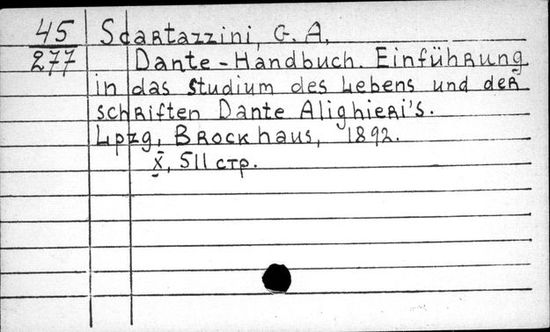 45
277
Scartazzini, G. A.
Dante-Handbuch. Einführung
in das Studium des Lebens und der
Schriften Dante Alighieri's.
Lpzg, Brockhaus, 1892.
X, 511 стр.